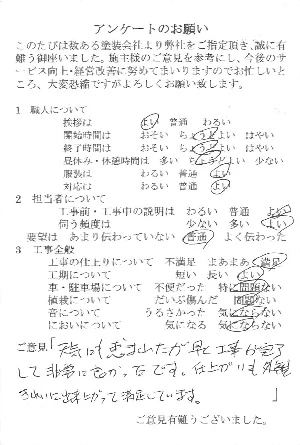 アンケートのお願い
このたびは数ある塗装会社より弊社をご指定頂き、誠に有
難う御座いました。施主様のご意見を参考にし、今後のサ
ービス向上・経営改善に努めてまいりますのでお忙しいと
ころ、大変恐縮ですがよろしくお願い致します。
1 職人について
挨拶は よい 普通 わるい
開始時間は おそい ちょうどよい はやい
終了時間は おそい ちょうどよい はやい
昼休み・休憩時間は 多い ちょうどよい 少ない
服装は わるい 普通 よい
対応は わるい 普通 よい
2 担当者について
工事前・工事中の説明は わるい 普通 よい
伺う頻度は 少ない 多い よい
要望は あまり伝わっていない 普通 よく伝わった
3 工事全般
工事の仕上りについて 不満足 まあまあ 満足
工期について 短い 長い よい
車・駐車場について 不便だった 特に問題ない
植栽について だいぶ傷んだ 問題ない
音について うるさかった 気にならない
においについて 気になる 気にならない
ご意見「天気にも恵まれたが早く工事が完了
して非常によかったです。仕上がりも外観
きれいに出来上がって満足しています。 」
ご意見有難うございました。